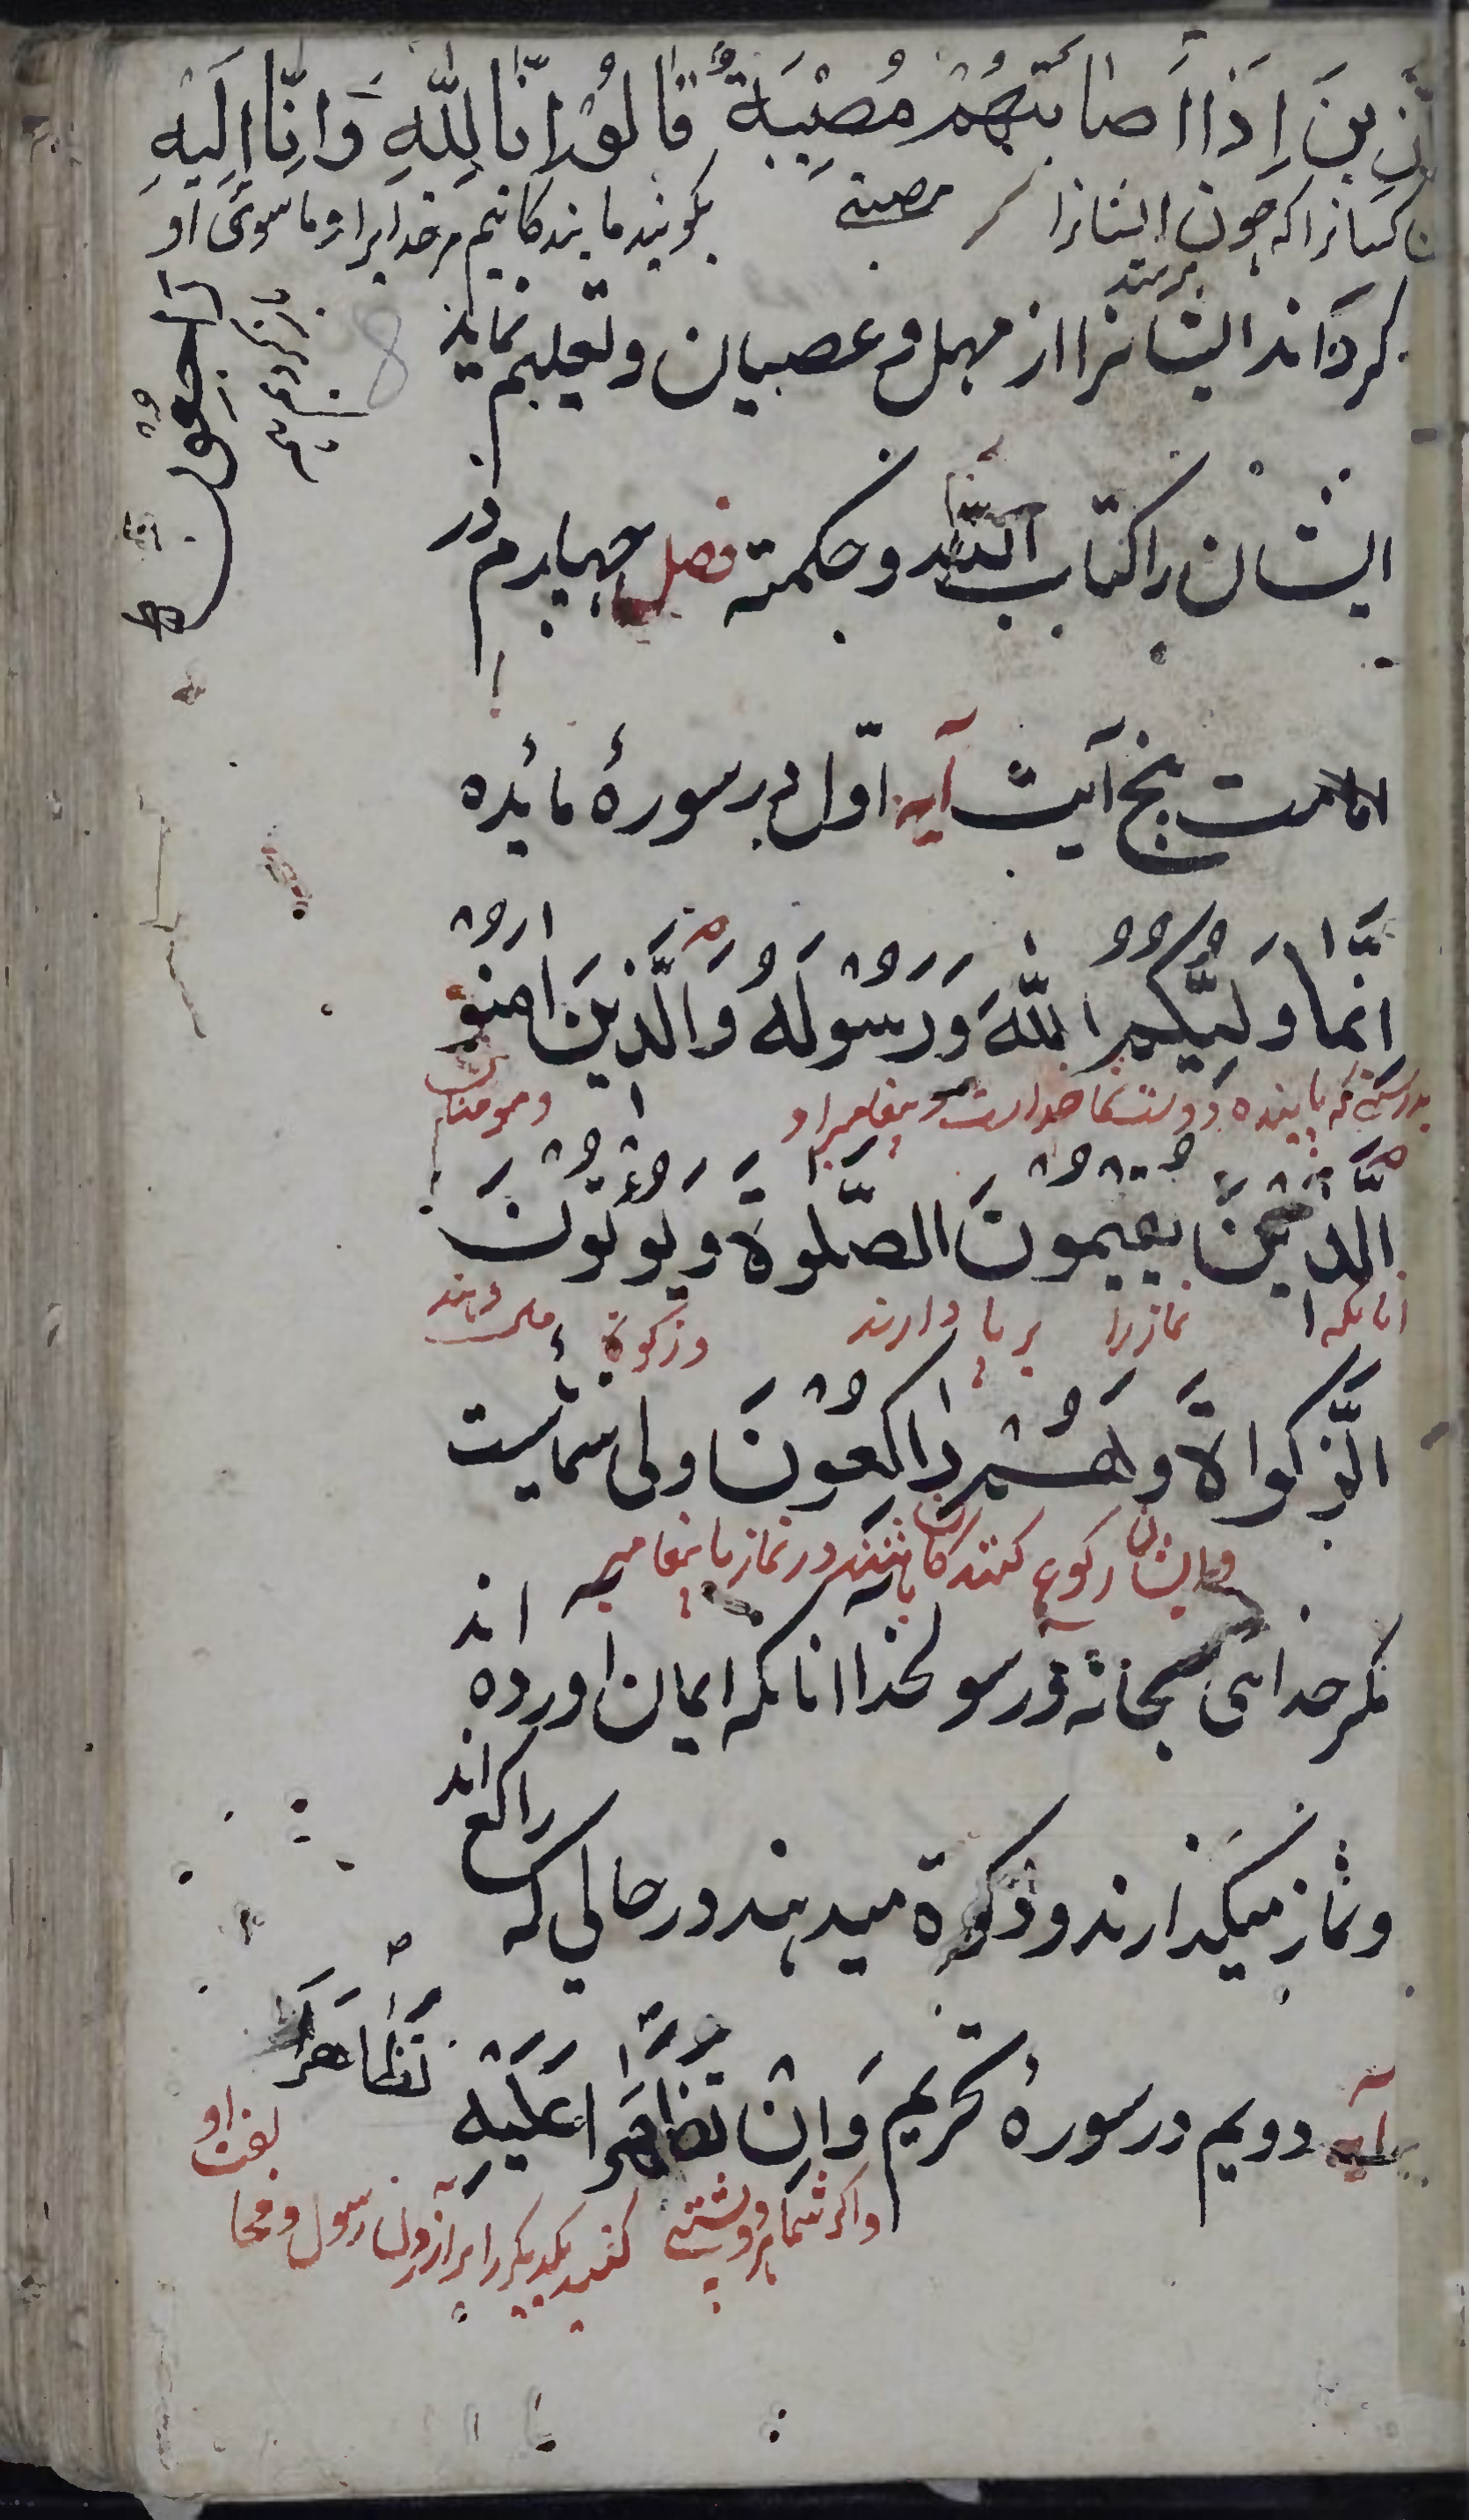 الذین اِذَا اَصَابَتْهُمْ مُصِیْبَةٌ قَالُوْا اِنَّا لِلّٰهِ وَاِنَّا اِلَیْهِ
کسانرا که چون ایشانرا برسد مصیبتی بگویند ما بندکانیم مر خدایرا و ما سوی او
رَاجِعُوْنَ
باز کردیم
کرداند ایشانرا از مهمل و عصیان و تعلیم نماید
ایشان را کتاب الله و حکمته فصل چهارم در
امامت پنج آیت آیه اوّل در سورهٔ مائده
اِنَّمَا وَلِیُّکُمُ اللّٰهَ وَرَسُوْلُهُ وَالَّذِیْنَ اٰمَنُوْ
بدرستی که یابنده دوست شما خداست و پیغامبر او و مومنان
الَّذِیْنَ یُقِیْمُوْنَ الصَّلٰوةَ وَیُوْتُوْنَ
انانکه نماز را بر پا دارند و زکوة می دهند
الَّزکواةَ وَهُمْ رٰاکِعُوْنَ ولی شما نیست
و ایشان رکوع کنندکان باشند در نماز با پیغامبر
مکر خدای سبحانه و رسولخدا آنانکه ایمان اورده اند
و نماز میکذارند و ذکوة میدهند در حالی که راکع اند
آیه دویم در سورهٔ تحریم وَاِنْ تَظَاهَرَا عَلَیْهِ
تَظَاهَرَا
و اکر شما هر دو پشتی کنید یکدیکر را بر آزردن رسول و مخا
لفت او